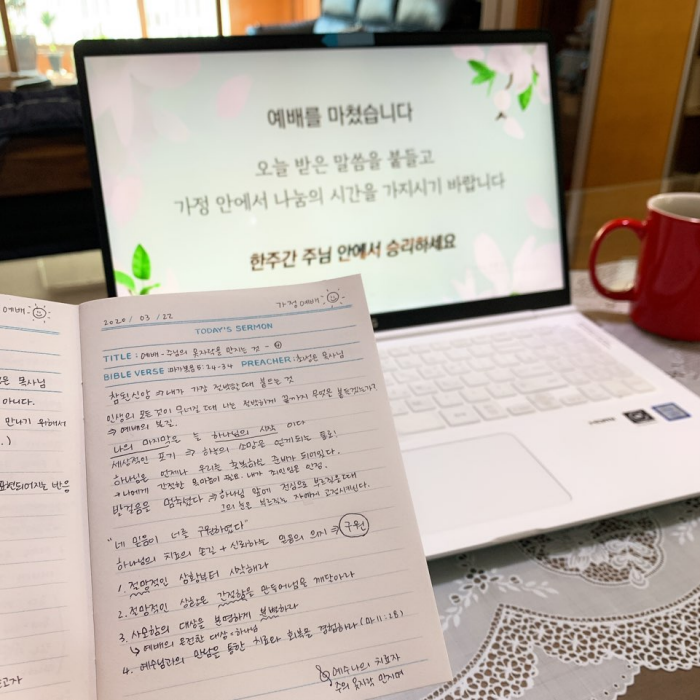 예배를 마쳤습니다
오늘 받은 말씀을 붙들고
가정 안에서 나눔의 시간을 가지시기 바랍니다
한주간 주님 안에서 승리하세요
예배
목사님
아니다.
만나기 위해서
표현되어지는 반응
2020 / 03 / 22
가정예배
TODAY'S SERMON
TITLE : 예배 - 주님의 옷자락을 만지는 것 - ④
BIBLE VERSE : 마가복음 5: 24-34 PREACHER : 목사님
참된신앙 ⇒ 내가 가장 절박할때 붙드는 것
인생의 모든것이 무너질 때 나는 절박하게 끝까지 무엇을 붙드겠는가?
⇒ 예배의 본질.
나의 마지막은 늘 하나님의 시작 이다
세상적인 포기 ⇒ 하늘의 소망을 얻게되는 통로!
하나님은 언제나 우리를 회복하실 준비가 되어있다.
발걸음을 멈추셨다 ⇒ 하나님 앞에 진심으로 부르짖을때
"네 믿음이 너를 구원하였다"
하나님의 치료의 손길 + 신뢰하는 믿음의 의지 ⇒ 구원
1. 절망적인 상황부터 시작해라
2. 절망적인 상황은 간절함을 만들어냄을 깨달아라
3. 사용함의 대상을 분명하게 분별하라
↳ 예배의 온전한 대상 · 하나님
4. 예수님과의 만남을 통한 치료와 회복을 경험하라 (마 11:28)
예수 나의 치료자
주의 옷자락 만지며